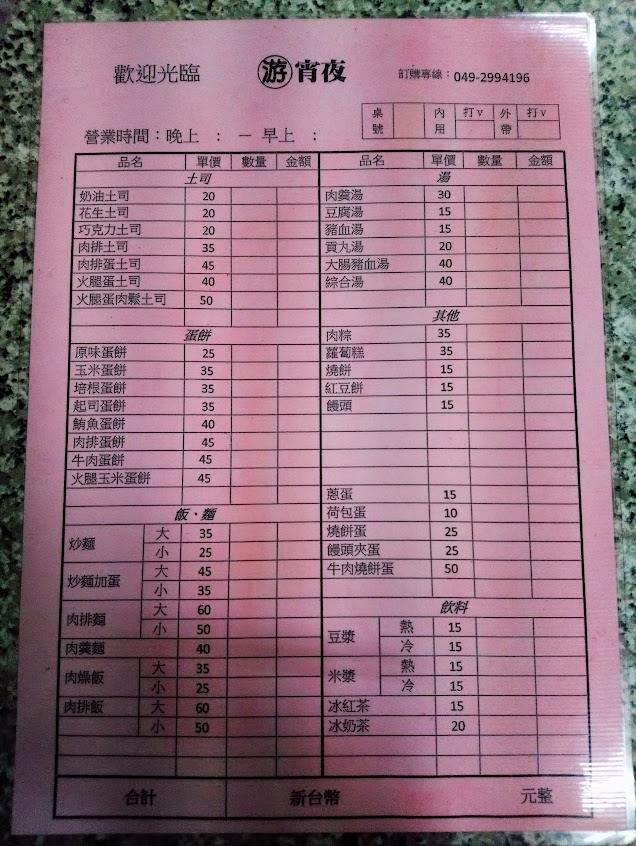 歡迎光臨 游 宵夜 訂購專線：049-2994196
桌號 內用 打v 外帶 打v
營業時間：晚上 ： － 早上 ：
品名 單價 數量 金額
土司
奶油土司 20
花生土司 20
巧克力土司 20
肉排土司 35
肉排蛋土司 45
火腿蛋土司 40
火腿蛋肉鬆土司 50
蛋餅
原味蛋餅 25
玉米蛋餅 35
培根蛋餅 35
起司蛋餅 35
鮪魚蛋餅 40
肉排蛋餅 45
牛肉蛋餅 45
火腿玉米蛋餅 45
飯、麵
炒麵 大 35
小 25
炒麵加蛋 大 45
小 35
肉排麵 大 60
小 50
肉羹麵 40
肉燥飯 大 35
小 25
肉排飯 大 60
小 50
品名 單價 數量 金額
湯
肉羹湯 30
豆腐湯 15
豬血湯 15
貢丸湯 20
大腸豬血湯 40
綜合湯 40
其他
肉粽 35
蘿蔔糕 35
燒餅 15
紅豆餅 15
饅頭 15
蔥蛋 15
荷包蛋 10
燒餅蛋 25
饅頭夾蛋 25
牛肉燒餅蛋 50
飲料
豆漿 熱 15
冷 15
米漿 熱 15
冷 15
冰紅茶 15
冰奶茶 20
合計 新台幣 元整